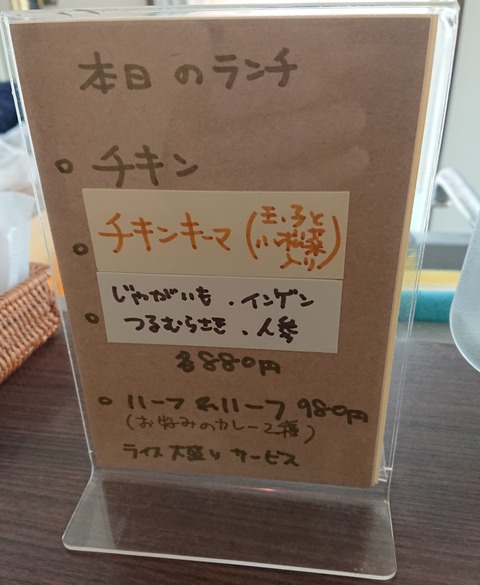 本日のランチ
チキン
チキンキーマ(玉ねぎと
小松菜
入り)
じゃがいも・インゲン
つるむらさき・人参
各880円
ハーフ&ハーフ 980円
(お好みのカレー2種)
ライス大盛りサービス